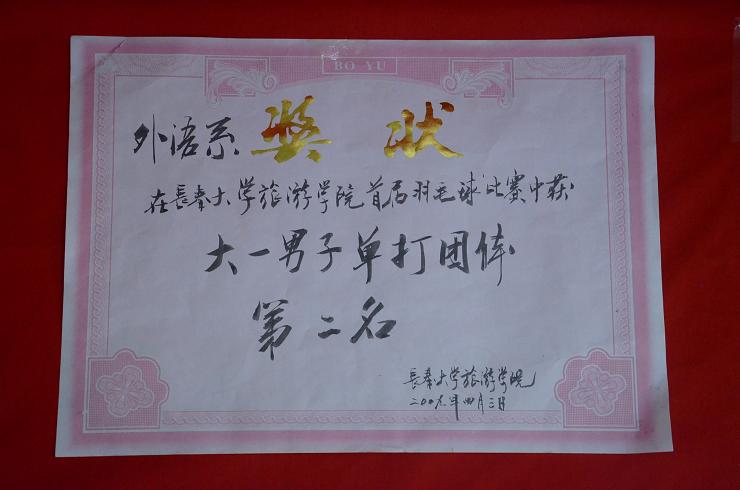 BO YU
外语系 奖状
在長春大学旅游学院首届羽毛球比赛中获
大一男子单打团体
第二名
長春大学旅游学院
年四月三日